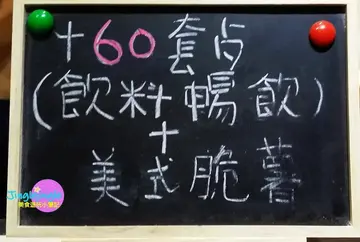 +60套点
(飲料暢飲)
+
美式脆薯